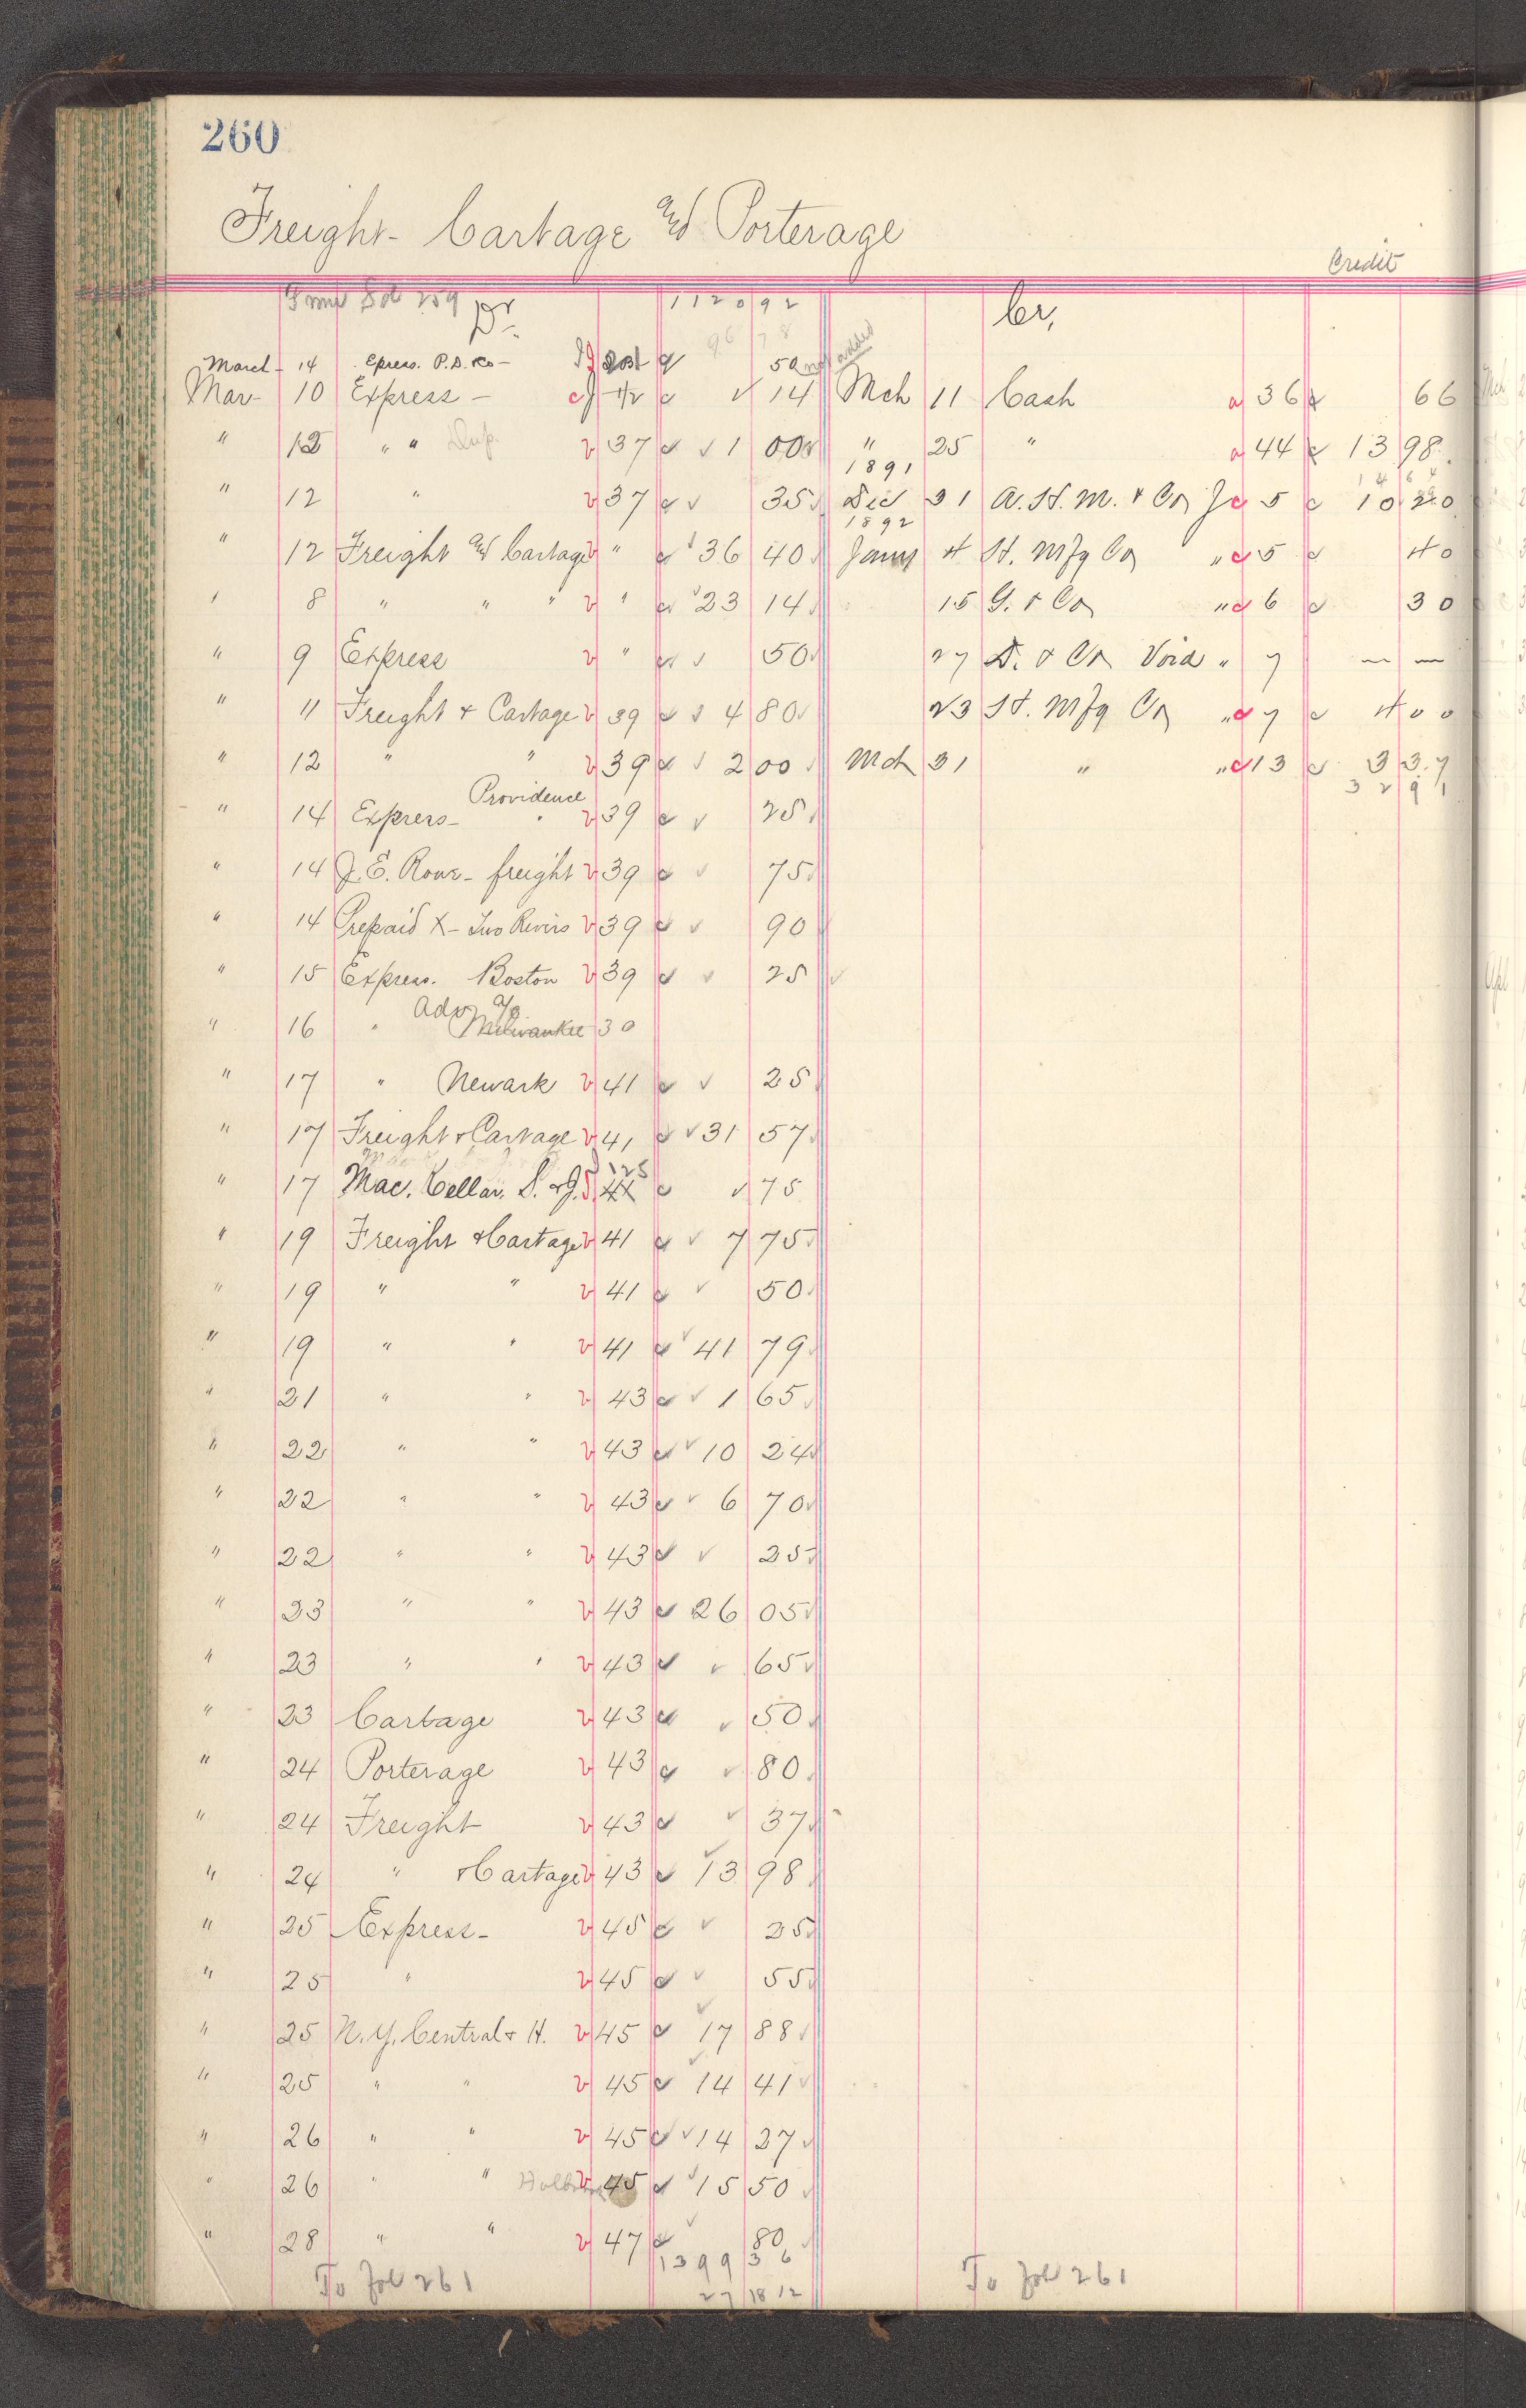 260
Freight- Cartage and Porterage
Credit
From Fol 259 Dr. 1120 92
March 14 Epress. P.D. Co- 50 not added
Mar- 10 Express - 14
" 12 " " Dup. 37 1 00
" 12 " 37 35
" 12 Freight and Cartage " 36 40
" 8 " " " " 23 14
" 9 Express " 50
" 11 Freight & Cartage 39 4 80
" 12 " " 39 2 00
" 14 Express- Providence 39 25
" 14 J.E. Rowe- freight 39 75
" 14 Prepaid X- Two Rivers 39 90
" 15 Express. Boston 39 25
" 16 " Adv a/c Milwaukee 30
" 17 " Newark 41 25
" 17 Freight & Cartage 41 31 57
" 17 Mac. Kellar. S. & J. 125 41 75
" 19 Freight & Cartage 41 7 75
" 19 " " 41 50
" 19 " " 41 41 79
" 21 " " 43 1 65
" 22 " " 43 10 24
" 22 " " 43 6 70
" 22 " " 43 25
" 23 " " 43 26 05
" 23 " " 43 65
" 23 Cartage 43 50
" 24 Porterage 43 80
" 24 Freight 43 37
" 24 " & Cartage 43 13 98
" 25 Express- 45 25
" 25 " 45 55
" 25 N.Y. Central & H. 45 17 88
" 25 " " 45 14 41
" 26 " " 45 14 27
" 26 " " 45 15 50
" 28 " " 47 80
1399 36
To Fol 261 27 18 12
Cr.
Mch 11 Cash 36 66
" 25 " 44 13 98
14 64
1891
Dec 31 A. H. M. & Co J 5 10 20
1892
Jany 4 H. Mfg Co " 5 40
15 G. & Co " 6 30
27 D. & Co Void " 7 — —
23 H. Mfg Co " 7 4 00
Mch 31 " " 13 3 37
32 91
To Fol 261